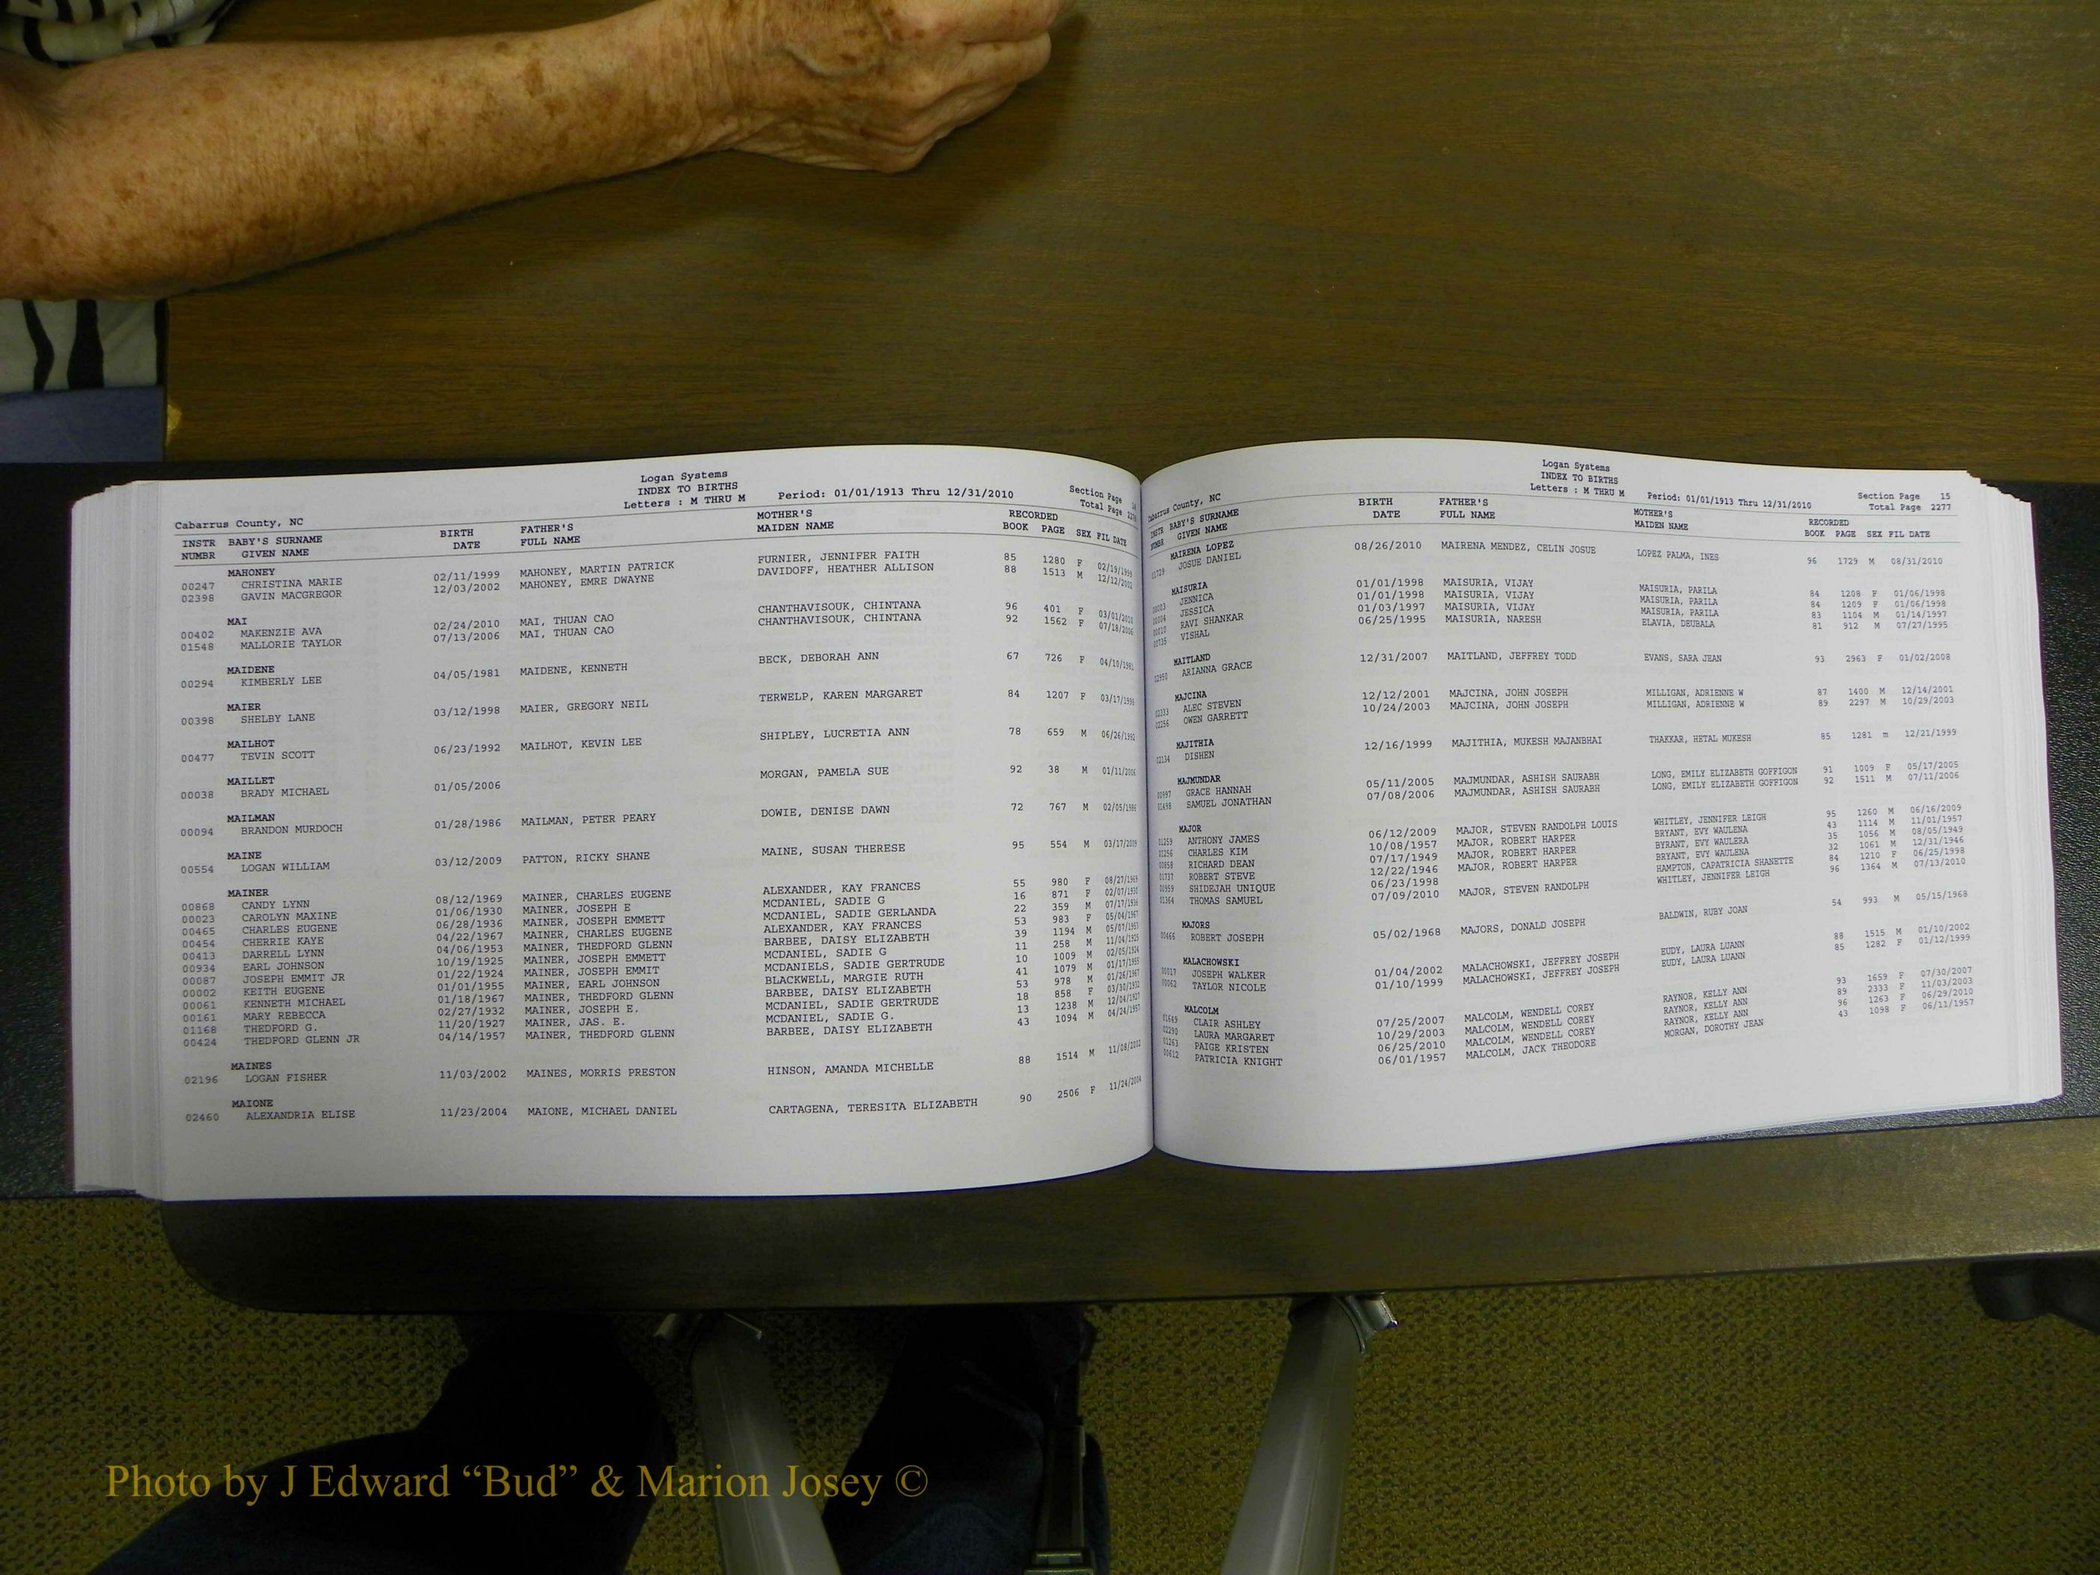 Logan Systems
INDEX TO BIRTHS
Letters : M THRU M Period: 01/01/1913 Thru 12/31/2010 Section Page
Cabarrus County, NC Total Page
INSTR BABY'S SURNAME BIRTH FATHER'S MOTHER'S RECORDED
NUMBR GIVEN NAME DATE FULL NAME MAIDEN NAME BOOK PAGE SEX FIL DATE
MAHONEY
00247 CHRISTINA MARIE 02/11/1999 MAHONEY, MARTIN PATRICK FURNIER, JENNIFER FAITH 85 1280 F 02/19/1999
02398 GAVIN MACGREGOR 12/03/2002 MAHONEY, EMRE DWAYNE DAVIDOFF, HEATHER ALLISON 88 1513 M 12/12/2002
MAI
00402 MAKENZIE AVA 02/24/2010 MAI, THUAN CAO CHANTHAVISOUK, CHINTANA 96 401 F 03/01/2010
01548 MALLORIE TAYLOR 07/13/2006 MAI, THUAN CAO CHANTHAVISOUK, CHINTANA 92 1562 F 07/18/2006
MAIDENE
00294 KIMBERLY LEE 04/05/1981 MAIDENE, KENNETH BECK, DEBORAH ANN 67 726 F 04/10/1981
MAIER
00398 SHELBY LANE 03/12/1998 MAIER, GREGORY NEIL TERWELP, KAREN MARGARET 84 1207 F 03/17/1998
MAILHOT
00477 TEVIN SCOTT 06/23/1992 MAILHOT, KEVIN LEE SHIPLEY, LUCRETIA ANN 78 659 M 06/26/1992
MAILLET
00038 BRADY MICHAEL 01/05/2006 MORGAN, PAMELA SUE 92 38 M 01/11/2006
MAILMAN
00094 BRANDON MURDOCH 01/28/1986 MAILMAN, PETER PEARY DOWIE, DENISE DAWN 72 767 M 02/05/1986
MAINE
00554 LOGAN WILLIAM 03/12/2009 PATTON, RICKY SHANE MAINE, SUSAN THERESE 95 554 M 03/17/2009
MAINER
00868 CANDY LYNN 08/12/1969 MAINER, CHARLES EUGENE ALEXANDER, KAY FRANCES 55 980 F 08/27/1969
00023 CAROLYN MAXINE 01/06/1930 MAINER, JOSEPH E MCDANIEL, SADIE G 16 871 F 02/07/1930
00465 CHARLES EUGENE 06/28/1936 MAINER, JOSEPH EMMETT MCDANIEL, SADIE GERLANDA 22 359 M 07/17/1936
00454 CHERRIE KAYE 04/22/1967 MAINER, CHARLES EUGENE ALEXANDER, KAY FRANCES 53 983 F 05/04/1967
00413 DARRELL LYNN 04/06/1953 MAINER, THEDFORD GLENN BARBEE, DAISY ELIZABETH 39 1194 M 05/07/1953
00934 EARL JOHNSON 10/19/1925 MAINER, JOSEPH EMMETT MCDANIEL, SADIE G 11 258 M 11/04/1925
00087 JOSEPH EMMIT JR 01/22/1924 MAINER, JOSEPH EMMIT MCDANIELS, SADIE GERTRUDE 10 1009 M 02/05/1924
00002 KEITH EUGENE 01/01/1955 MAINER, EARL JOHNSON BLACKWELL, MARGIE RUTH 41 1079 M 01/17/1955
00061 KENNETH MICHAEL 01/18/1967 MAINER, THEDFORD GLENN BARBEE, DAISY ELIZABETH 53 978 M 01/26/1967
00161 MARY REBECCA 02/27/1932 MAINER, JOSEPH E. MCDANIEL, SADIE GERTRUDE 18 858 F 03/30/1932
01168 THEDFORD G. 11/20/1927 MAINER, JAS. E. MCDANIEL, SADIE G. 13 1238 M 12/04/1927
00424 THEDFORD GLENN JR 04/14/1957 MAINER, THEDFORD GLENN BARBEE, DAISY ELIZABETH 43 1094 M 04/24/1957
MAINES
02196 LOGAN FISHER 11/03/2002 MAINES, MORRIS PRESTON HINSON, AMANDA MICHELLE 88 1514 M 11/08/2002
MAIONE
02460 ALEXANDRIA ELISE 11/23/2004 MAIONE, MICHAEL DANIEL CARTAGENA, TERESITA ELIZABETH 90 2506 F 11/24/2004
Logan Systems
INDEX TO BIRTHS
Letters : M THRU M Period: 01/01/1913 Thru 12/31/2010 Section Page 15
Cabarrus County, NC Total Page 2277
INSTR BABY'S SURNAME BIRTH FATHER'S MOTHER'S RECORDED
NUMBR GIVEN NAME DATE FULL NAME MAIDEN NAME BOOK PAGE SEX FIL DATE
MAIRENA LOPEZ
01729 JOSUE DANIEL 08/26/2010 MAIRENA MENDEZ, CELIN JOSUE LOPEZ PALMA, INES 96 1729 M 08/31/2010
MAISURIA
00003 JENNICA 01/01/1998 MAISURIA, VIJAY MAISURIA, PARILA 84 1208 F 01/06/1998
00004 JESSICA 01/01/1998 MAISURIA, VIJAY MAISURIA, PARILA 84 1209 F 01/06/1998
00010 RAVI SHANKAR 01/03/1997 MAISURIA, VIJAY MAISURIA, PARILA 83 1104 M 01/14/1997
00735 VISHAL 06/25/1995 MAISURIA, NARESH ELAVIA, DEUBALA 81 912 M 07/27/1995
MAITLAND
02950 ARIANNA GRACE 12/31/2007 MAITLAND, JEFFREY TODD EVANS, SARA JEAN 93 2963 F 01/02/2008
MAJCINA
02333 ALEC STEVEN 12/12/2001 MAJCINA, JOHN JOSEPH MILLIGAN, ADRIENNE W 87 1400 M 12/14/2001
02256 OWEN GARRETT 10/24/2003 MAJCINA, JOHN JOSEPH MILLIGAN, ADRIENNE W 89 2297 M 10/29/2003
MAJITHIA
02134 DISHEN 12/16/1999 MAJITHIA, MUKESH MAJANBHAI THAKKAR, HETAL MUKESH 85 1281 m 12/21/1999
MAJMUNDAR
00997 GRACE HANNAH 05/11/2005 MAJMUNDAR, ASHISH SAURABH LONG, EMILY ELIZABETH GOFFIGON 91 1009 F 05/17/2005
01498 SAMUEL JONATHAN 07/08/2006 MAJMUNDAR, ASHISH SAURABH LONG, EMILY ELIZABETH GOFFIGON 92 1511 M 07/11/2006
MAJOR
01259 ANTHONY JAMES 06/12/2009 MAJOR, STEVEN RANDOLPH LOUIS WHITLEY, JENNIFER LEIGH 95 1260 M 06/16/2009
01256 CHARLES KIM 10/08/1957 MAJOR, ROBERT HARPER BRYANT, EVY WAULENA 43 1114 M 11/01/1957
00858 RICHARD DEAN 07/17/1949 MAJOR, ROBERT HARPER BYRANT, EVY WAULERA 35 1056 M 08/05/1949
01737 ROBERT STEVE 12/22/1946 MAJOR, ROBERT HARPER BRYANT, EVY WAULENA 32 1061 M 12/31/1946
00959 SHIDEJAH UNIQUE 06/23/1998 HAMPTON, CAPATRICIA SHANETTE 84 1210 F 06/25/1998
01364 THOMAS SAMUEL 07/09/2010 MAJOR, STEVEN RANDOLPH WHITLEY, JENNIFER LEIGH 96 1364 M 07/13/2010
MAJORS
00466 ROBERT JOSEPH 05/02/1968 MAJORS, DONALD JOSEPH BALDWIN, RUBY JOAN 54 993 M 05/15/1968
MALACHOWSKI
00017 JOSEPH WALKER 01/04/2002 MALACHOWSKI, JEFFREY JOSEPH EUDY, LAURA LUANN 88 1515 M 01/10/2002
00062 TAYLOR NICOLE 01/10/1999 MALACHOWSKI, JEFFREY JOSEPH EUDY, LAURA LUANN 85 1282 F 01/12/1999
MALCOLM
01649 CLAIR ASHLEY 07/25/2007 MALCOLM, WENDELL COREY RAYNOR, KELLY ANN 93 1659 F 07/30/2007
02290 LAURA MARGARET 10/29/2003 MALCOLM, WENDELL COREY RAYNOR, KELLY ANN 89 2333 F 11/03/2003
01263 PAIGE KRISTEN 06/25/2010 MALCOLM, WENDELL COREY RAYNOR, KELLY ANN 96 1263 F 06/29/2010
00612 PATRICIA KNIGHT 06/01/1957 MALCOLM, JACK THEODORE MORGAN, DOROTHY JEAN 43 1098 F 06/11/1957
Photo by J Edward “Bud” & Marion Josey ©